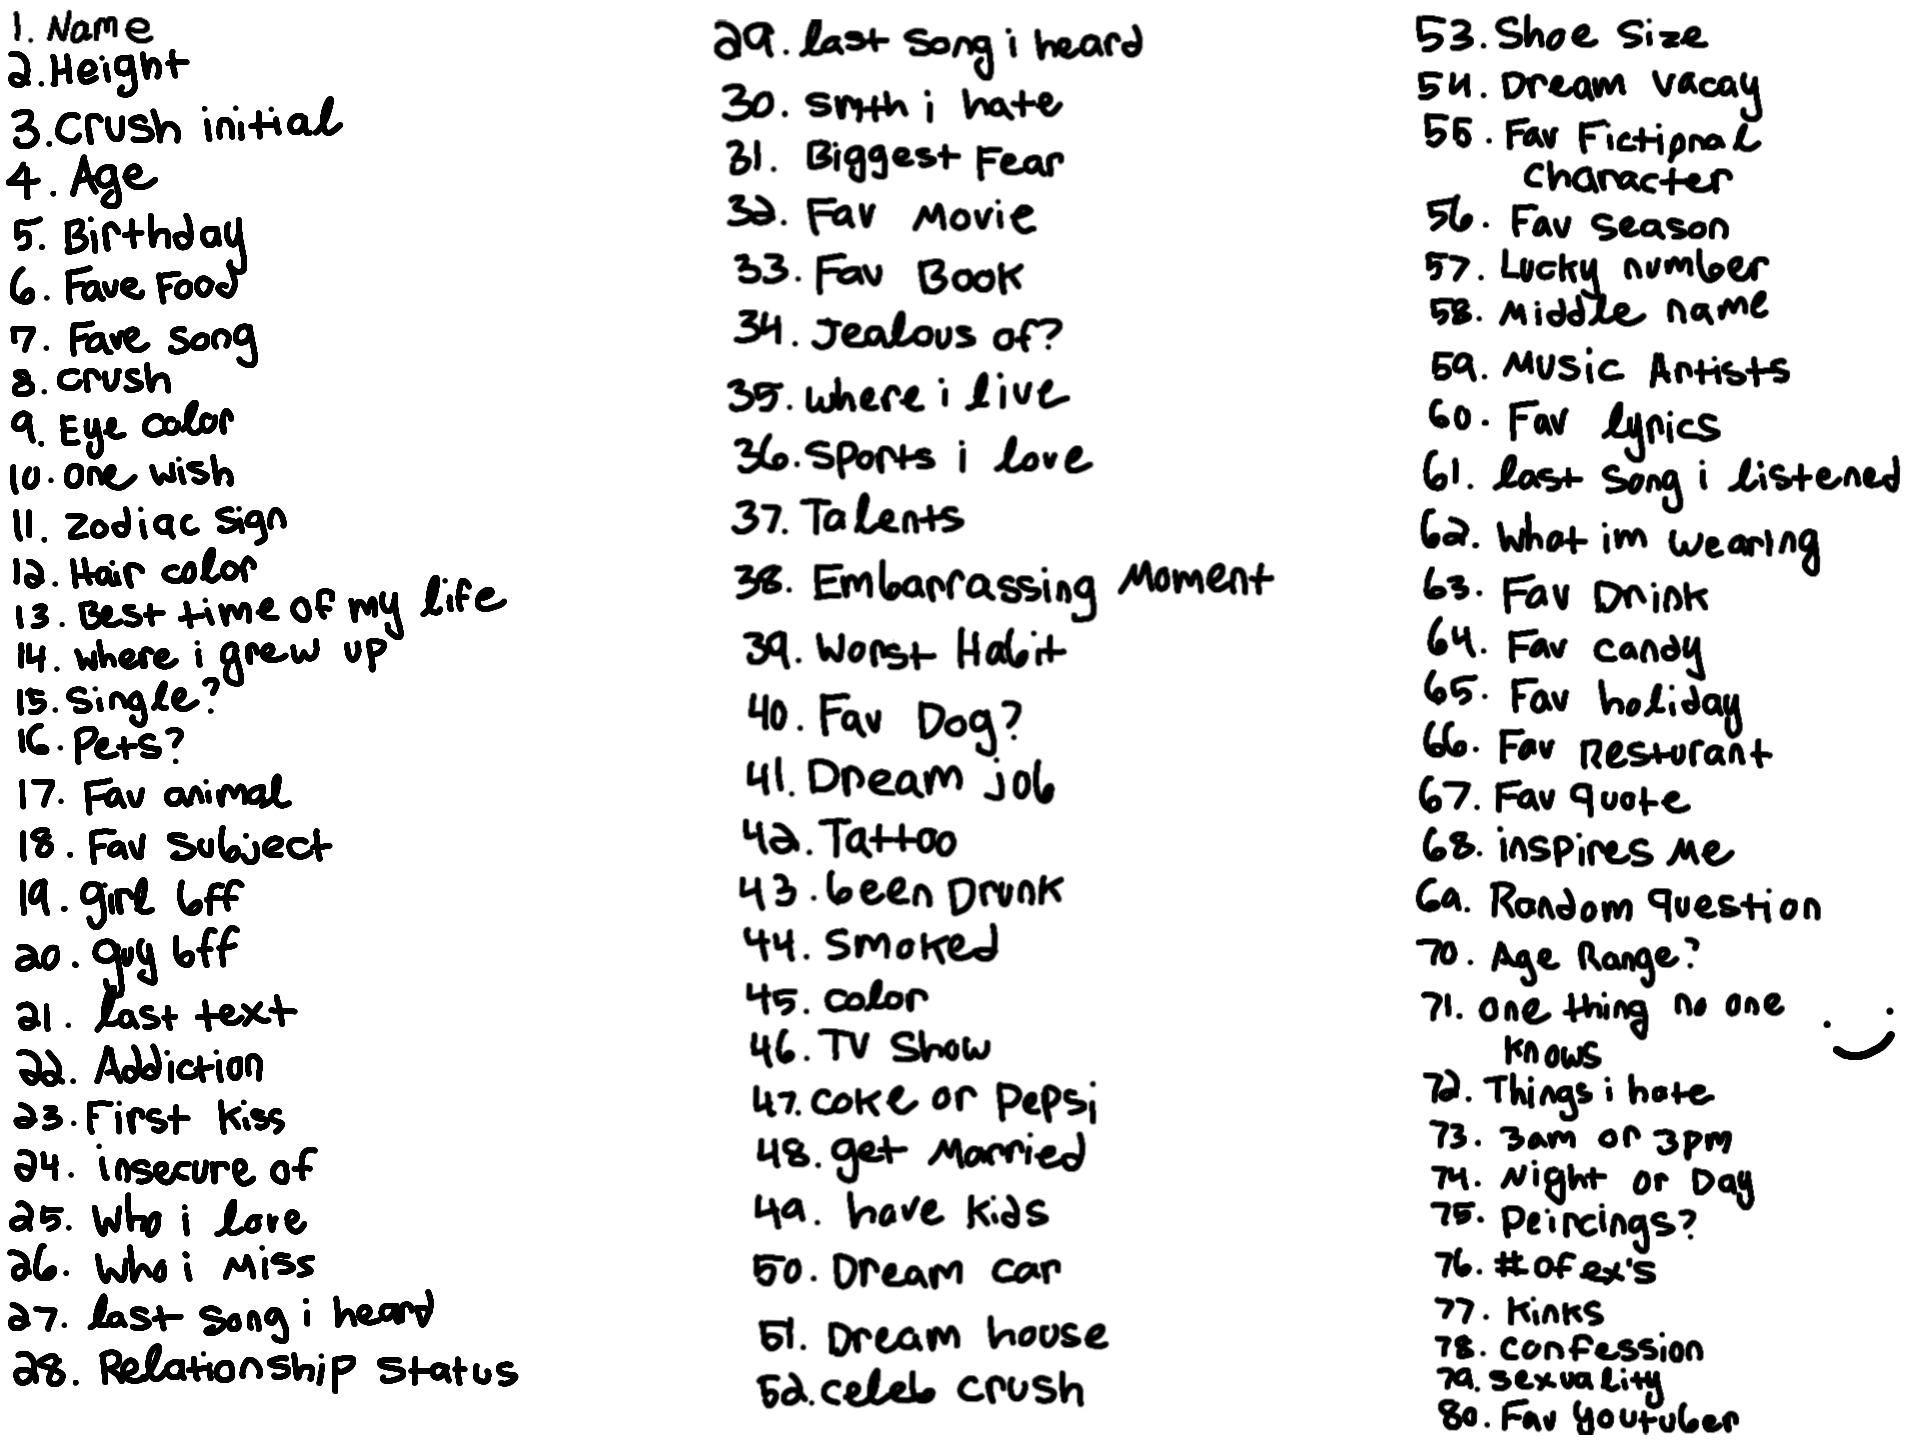 1. Name
2. Height
3. crush initial
4. Age
5. Birthday
6. Fave Food
7. Fave song
8. crush
9. Eye color
10. one wish
11. zodiac sign
12. Hair color
13. Best time of my life
14. where i grew up
15. single?
16. Pets?
17. Fav animal
18. Fav subject
19. girl bff
20. guy bff
21. last text
22. Addiction
23. First kiss
24. insecure of
25. Who i love
26. Who i Miss
27. last song i heard
28. Relationship status
29. last song i heard
30. smth i hate
31. Biggest Fear
32. Fav Movie
33. Fav Book
34. Jealous of?
35. where i live
36. Sports i love
37. Talents
38. Embarrassing Moment
39. Worst Habit
40. Fav Dog?
41. Dream job
42. Tattoo
43. been Drunk
44. Smoked
45. color
46. TV Show
47. coke or Pepsi
48. get Married
49. have kids
50. Dream car
51. Dream house
52. celeb crush
53. Shoe Size
54. Dream vacay
55. Fav Fictional
character
56. Fav season
57. Lucky number
58. Middle name
59. Music Artists
60. Fav lyrics
61. last song i listened
62. What im wearing
63. Fav Drink
64. Fav candy
65. Fav holiday
66. Fav Resturant
67. Fav quote
68. inspires Me
69. Random question
70. Age Range?
71. one thing no one
knows
72. Things i hate
73. 3am or 3pm
74. Night or Day
75. Peircings?
76. # of ex's
77. Kinks
78. confession
79. sexuality
80. Fav youtuber